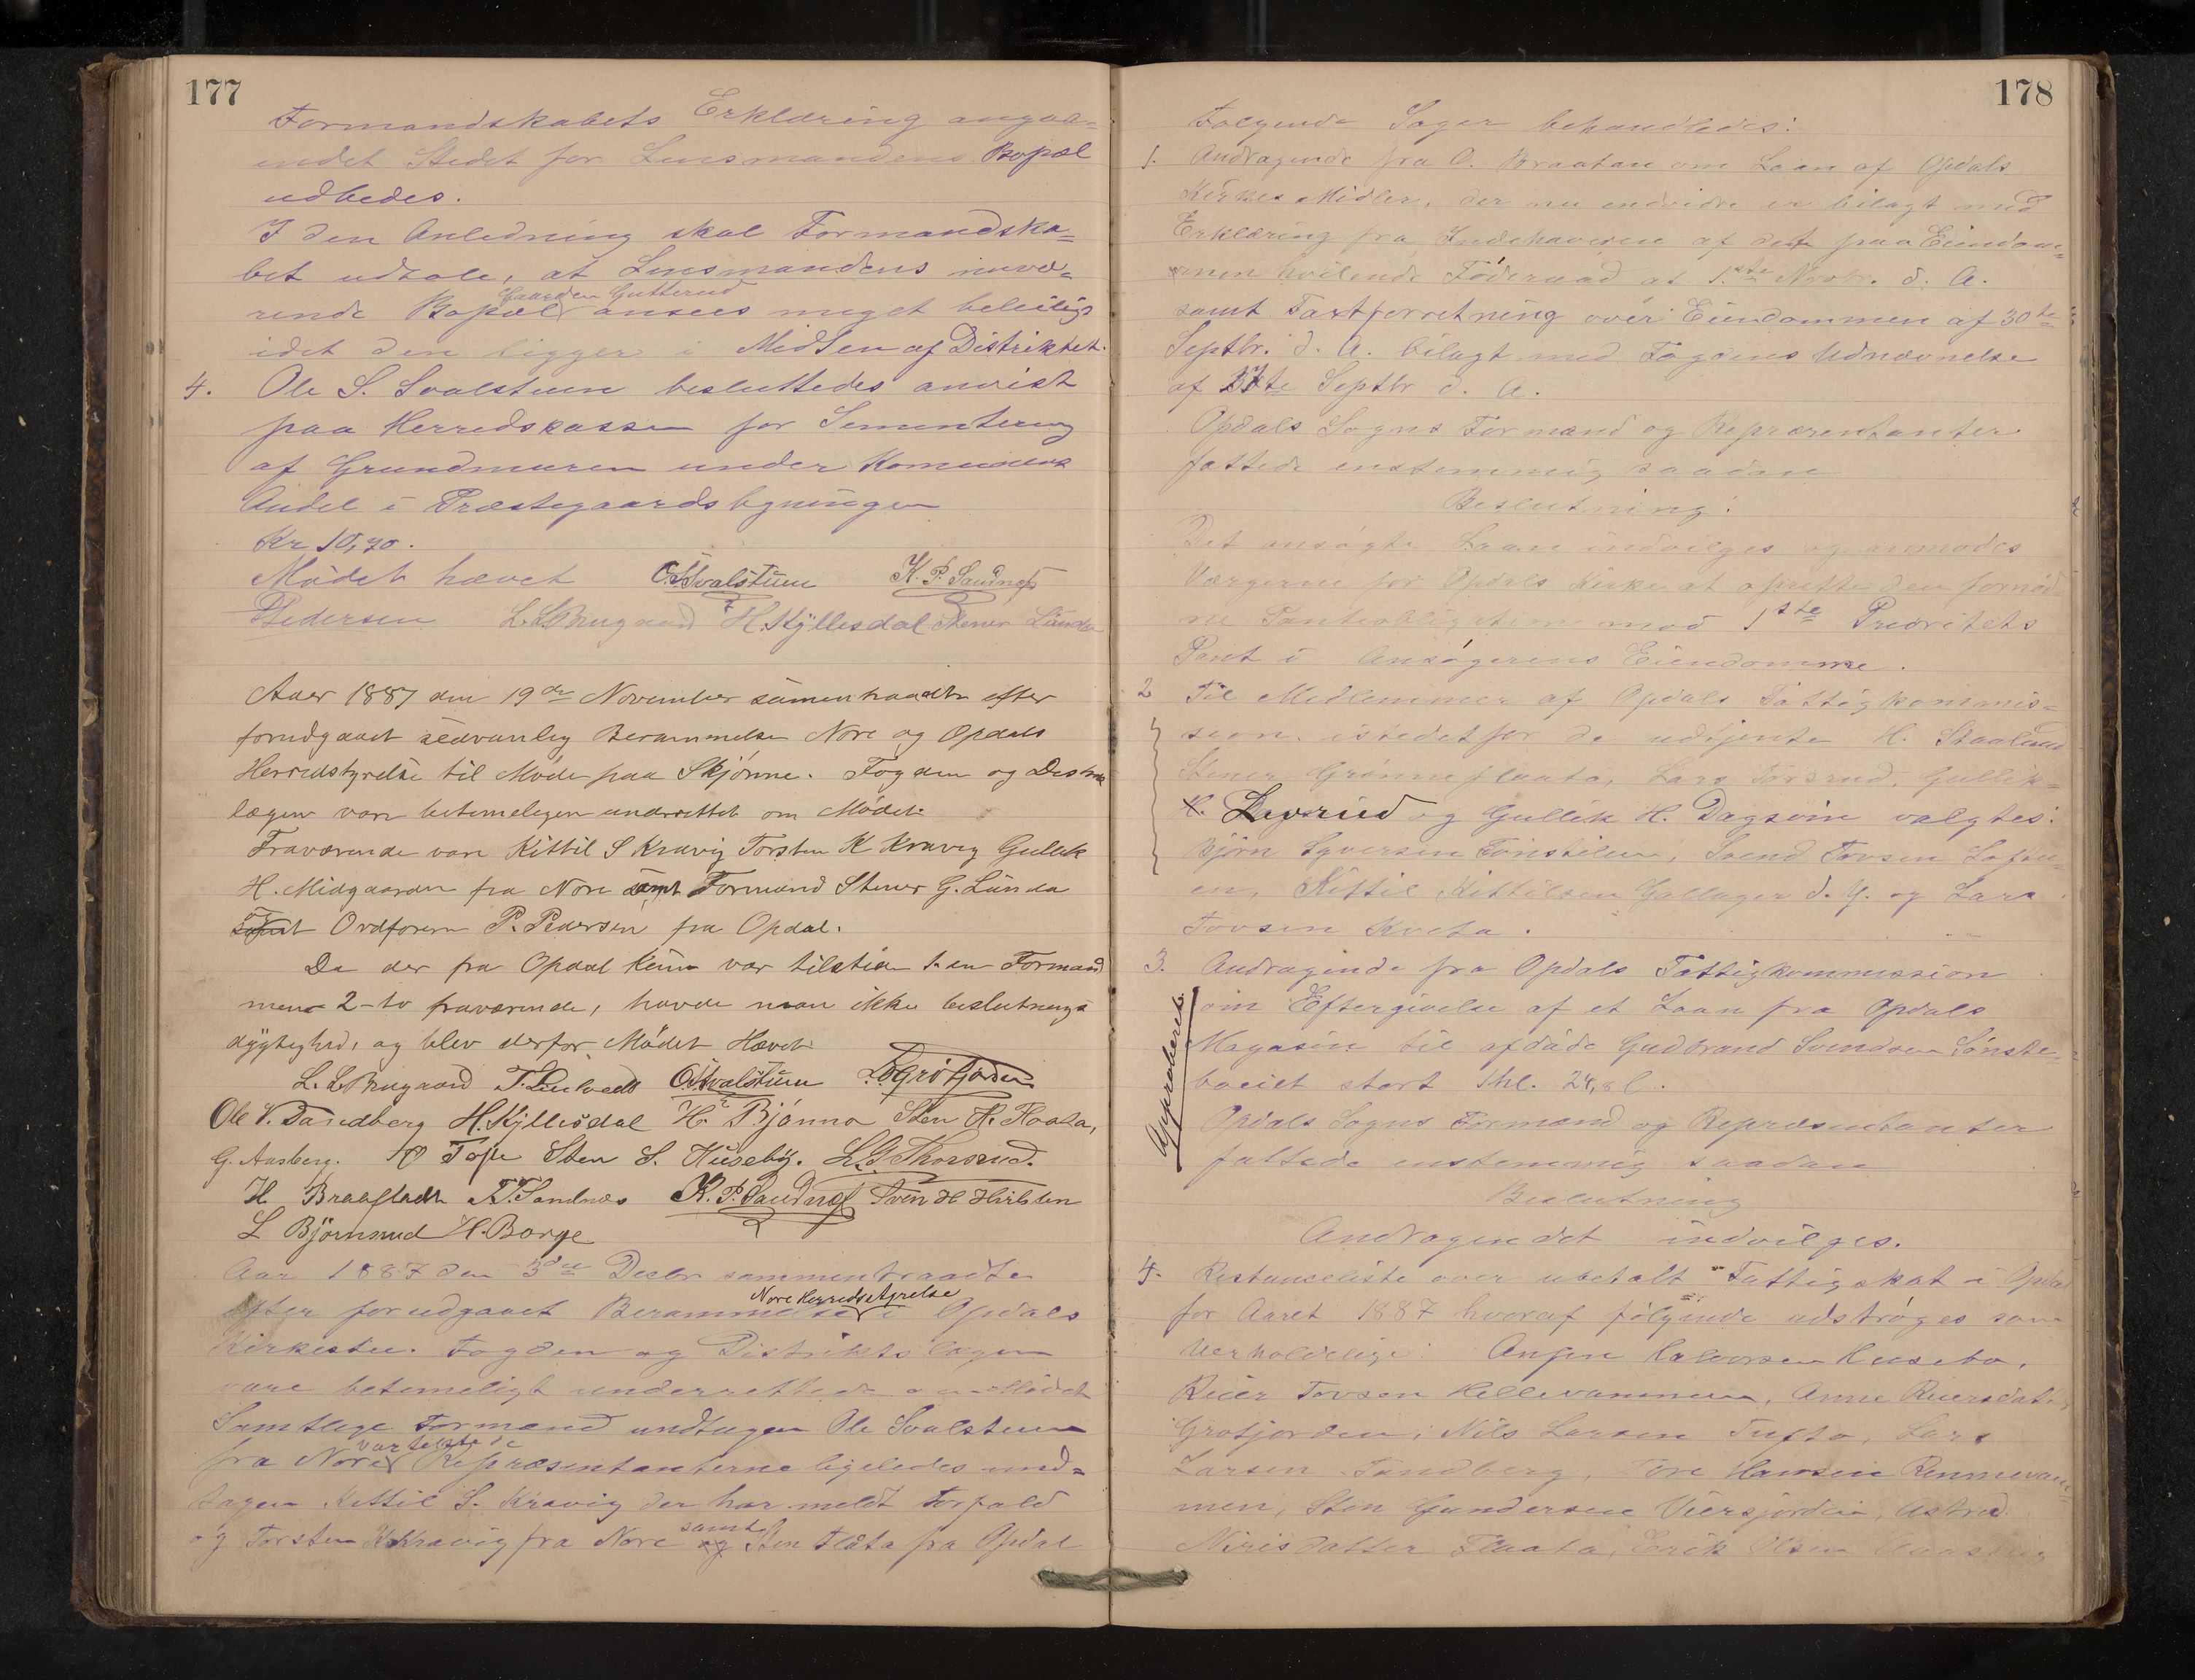 177
Formandskabets Erklæring angaa=
endet Stedet for Lensmandens Bopæl
udbedes.
I den Anledning skal Formandska=
bet udtale, at Lensmandens nuvæ=
Gaarden Gutterud
rende Bopæl ansees meget beleilig
idet den ligger i Midten af Distriktet.
4. Ole S. Svalstuen besluttedes anvist
paa Herredskassen for Sementering
af Grundmuren under Komunens
Andel i Præstegaardsbygningen
Kr 10,70.
Mødet hævet OSSvalstuen K. P. Sandnes
PPedersen L. L. Brugaard H. Kjyllesdal Stener Lunda
Aaer 1887 den 19de November samentraadte efter
forudgaaet sedvanlig Berammelse Nore og Opdals
Herredstyrelse til Møde paa Skjønne. Fogden og Destrik
lægen vare betemeligen underrettet om Mødet.
Fraværende vare Kittil S Kravig Torsten K Kravig Gullik
H. Midgaarden fra Nore samt Formand Stener G. Lunda
og
samt Ordføreren P. Pedersen fra Opdal.
Da der fra Opdal kun var tilstæde 1. en Formand
men 2-to fraværende, havde man ikke beslutnings
dygtighed, og blev derfor Mødet Hævet.
L. L Brugaard OSSvalstuen
Ole V. Tandberg H. Kjyllesdal H. Bjønno Sten K. Floata,
G. Aasberg. Sten S. Huseby. L. G. Thorsrud.
H Braastadt T. Sandnæs K. P. Sandnes
L Björnsrud H. Borge
Aar 1887 den 3die Decbr sammentraadte
Nore Herredsstyrelse
efter forudgaaet Berammelse i Opdals
Kirkestue. Fogden og Distriktslægen
vare betemeligt underrettede om Mødet
Samtlige Formænd undtagen Ole Svalstuen
var tilstede
fra Nore Repræsentanterne ligeledes und=
tagen Kittil S. Kravig der har meldt Forfald
samt
og Torsten K Kravig fra Nore og Sten Flåta fra Opdal
178
Følgende Sager behandledes:
1. Andragende fra O. Braatan om Laan af Opdals
Kirkes Midler, der nu endvidre er bilagt med
Erklæring fra Indehaveren af det paa Eiendom=
menen hvilende Føderaad at 1ste Novbr. d. A.
samt Taxtforretning over Eiendommen af 30te
Septbr. d. A. bilagt med Fogdens Udnævnelse
af 27te Septbr d. A.
Opdals Sogns Formænd og Repræsentanter
fattede enstemmig saadan
Beslutning:
Det ansøgte Laan indvilges og anmodes
Værgerne for Opdals Kirke at oprette den fornød
ne Panteobligation mod 1ste Prioritets
Pant i Ansøgerens Eiendomme.
2 Til Medlemmer af Opdals Fattigkommis=
sion istedetfor de udtjente H. Staaland
Stener Grønneflaata, Lars Torsrud, Gullik
H. Lavrud og Gullik H. Dagsvin valgtes:
Bjørn Syversen Tønstilen, Svend Tovsen Loftu=
en, Kittil Kittilsen Gallager d. y. og Lars
Tovsen Kveta.
3. Andragende fra Opdals Fattigkommission
om Eftergivelse af et Laan fra Opdals
Magasin til afdøde Gudbrand Svendsen Sønste=
bøeiet stort Thl. 24,8 l.
Approberet
Opdals Sogns Formænd og Repræsentanter
fattede enstemmig saadan
Beslutning
Andragendet indvilges.
4. Restanceliste over ubetalt Fattigskat i Opdal
for Aaret 1887 hvoraf følgende udstrøges som
Uerholdelige: Anfin Halvorsen Husebø,
Reier Tovsen Hellevammen, Anne Reiersdatter
Grøtjorden, Nils Larsen Tufta, Lars
Larsen Tandberg, Tore Hansen Rennevam=
men, Sten Gundersen Viersjordin, Astrid
Nirisdatter Flaata, Erik Olsen